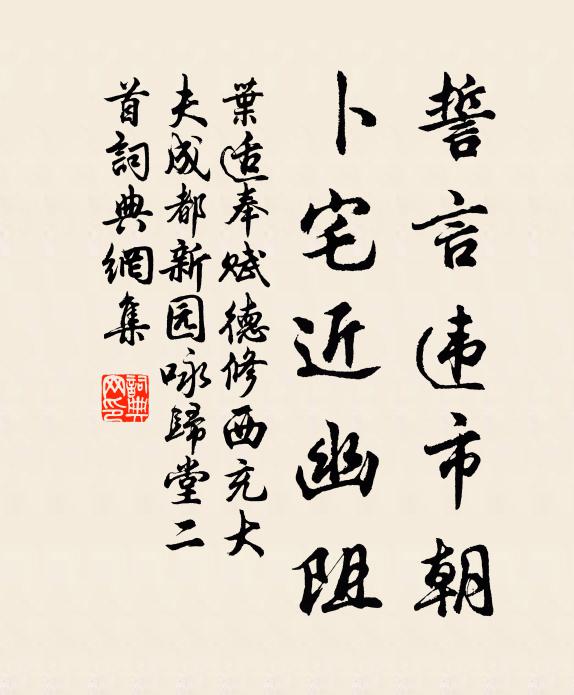 誓言违市朝
卜宅近幽阻
葉适奉赋德修西充大
夫成都新园咏歸堂二
首詞典網集
詞典
网印